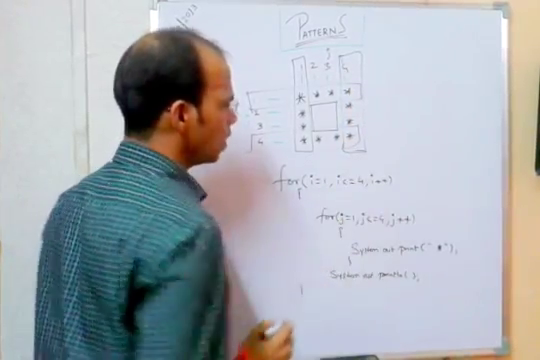 2013
PATTERNS
j
1 2 3 4
* * * *
2 * *
3 * *
4 * * * *
for(i=1, i<=4, i++)
{
for(j=1, j<=4, j++)
{
System out print(" * "),
}
System out println( ),
}